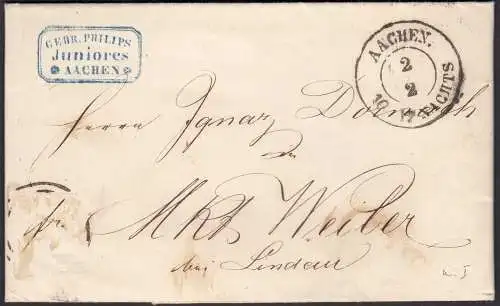 GEBR. PHILIPS
Juniores
AACHEN
AACHEN.
2
2
NACHTS
Herrn Ignaz
in
Mkt Weiler
bei Lindau